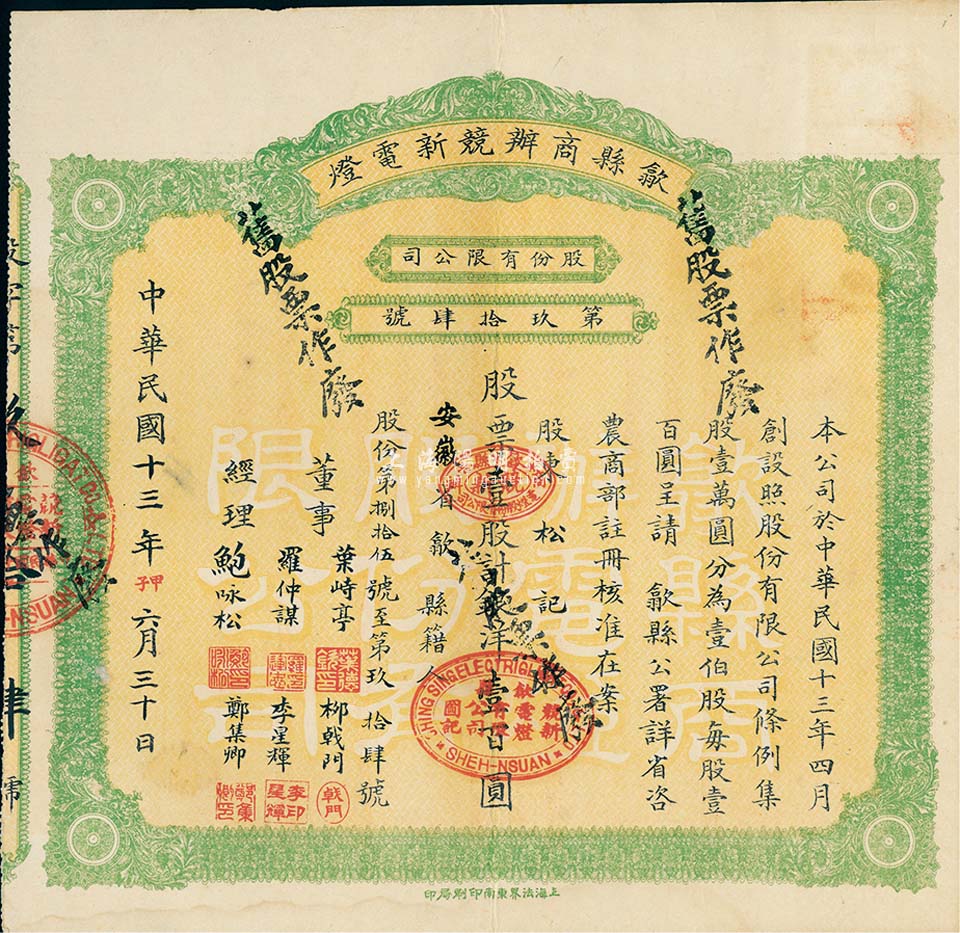 歙縣商辦競新電燈
股份有限公司
第玖拾肆號
本公司於中華民國十三年四月
創設照股份有限公司條例集
股壹萬圓分為壹伯股每股壹
百圓呈請 歙縣公署詳省咨
農商部註冊核准在案
股東 松記
股票壹股計銀洋壹百圓
安徽省歙縣籍人
股份第捌拾伍號至第玖拾肆號
董事 葉峙亭 柳戟門
羅仲謀 李星輝
經理 鮑咏松 鄭集卿
中華民國十三年甲子六月三十日
舊股票作廢
舊股票作廢
戟門
李印星輝
JHING SING ELECTRIC LIGHT
歙縣競新電燈公司圖記
SHEH-NSUAN
SHEH-NSUAN
上海法界東南印刷局印